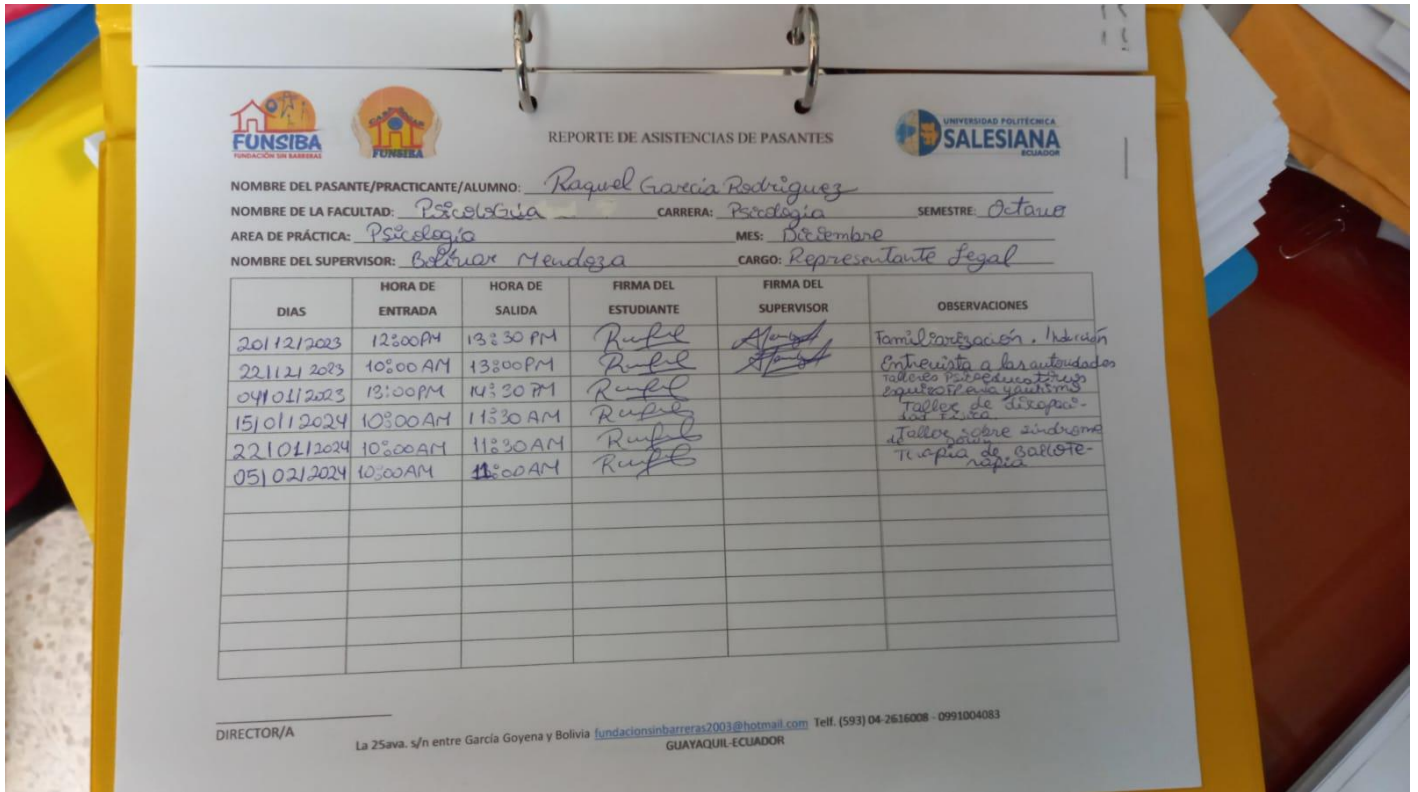 FUNSIBA
FUNDACIÓN SIN BARRERAS
FUNSIBA
REPORTE DE ASISTENCIAS DE PASANTES
UNIVERSIDAD POLITÉCNICA
SALESIANA
ECUADOR
NOMBRE DEL PASANTE/PRACTICANTE/ALUMNO: Raquel García Rodriguez
NOMBRE DE LA FACULTAD: PsicoloGúa CARRERA: Psicología SEMESTRE: Octavo
AREA DE PRÁCTICA: Psicología MES: Diciembre
NOMBRE DEL SUPERVISOR: Bolívar Mendoza CARGO: Representante Legal
DIAS HORA DE ENTRADA HORA DE SALIDA FIRMA DEL ESTUDIANTE FIRMA DEL SUPERVISOR OBSERVACIONES
20/12/2023 12:00PM 13:30 PM Familiarización. Inducción
22/12/2023 10:00 AM 13:00PM Entrevista a las autoridades
04/01/2023 13:00PM 14:30 PM Talleres Psicoeducativos esquizofrenia y autismo
15/01/2024 10:00AM 11:30 AM Taller de discapaci-dad Física
22/01/2024 10:00AM 11:30AM Taller sobre síndrome de Down
05/02/2024 10:00AM 11:00AM Terapia de bailote-rapia
DIRECTOR/A
La 25ava. s/n entre García Goyena y Bolivia fundacionsinbarreras2003@hotmail.com Telf. (593) 04-2616008 - 0991004083
GUAYAQUIL-ECUADOR